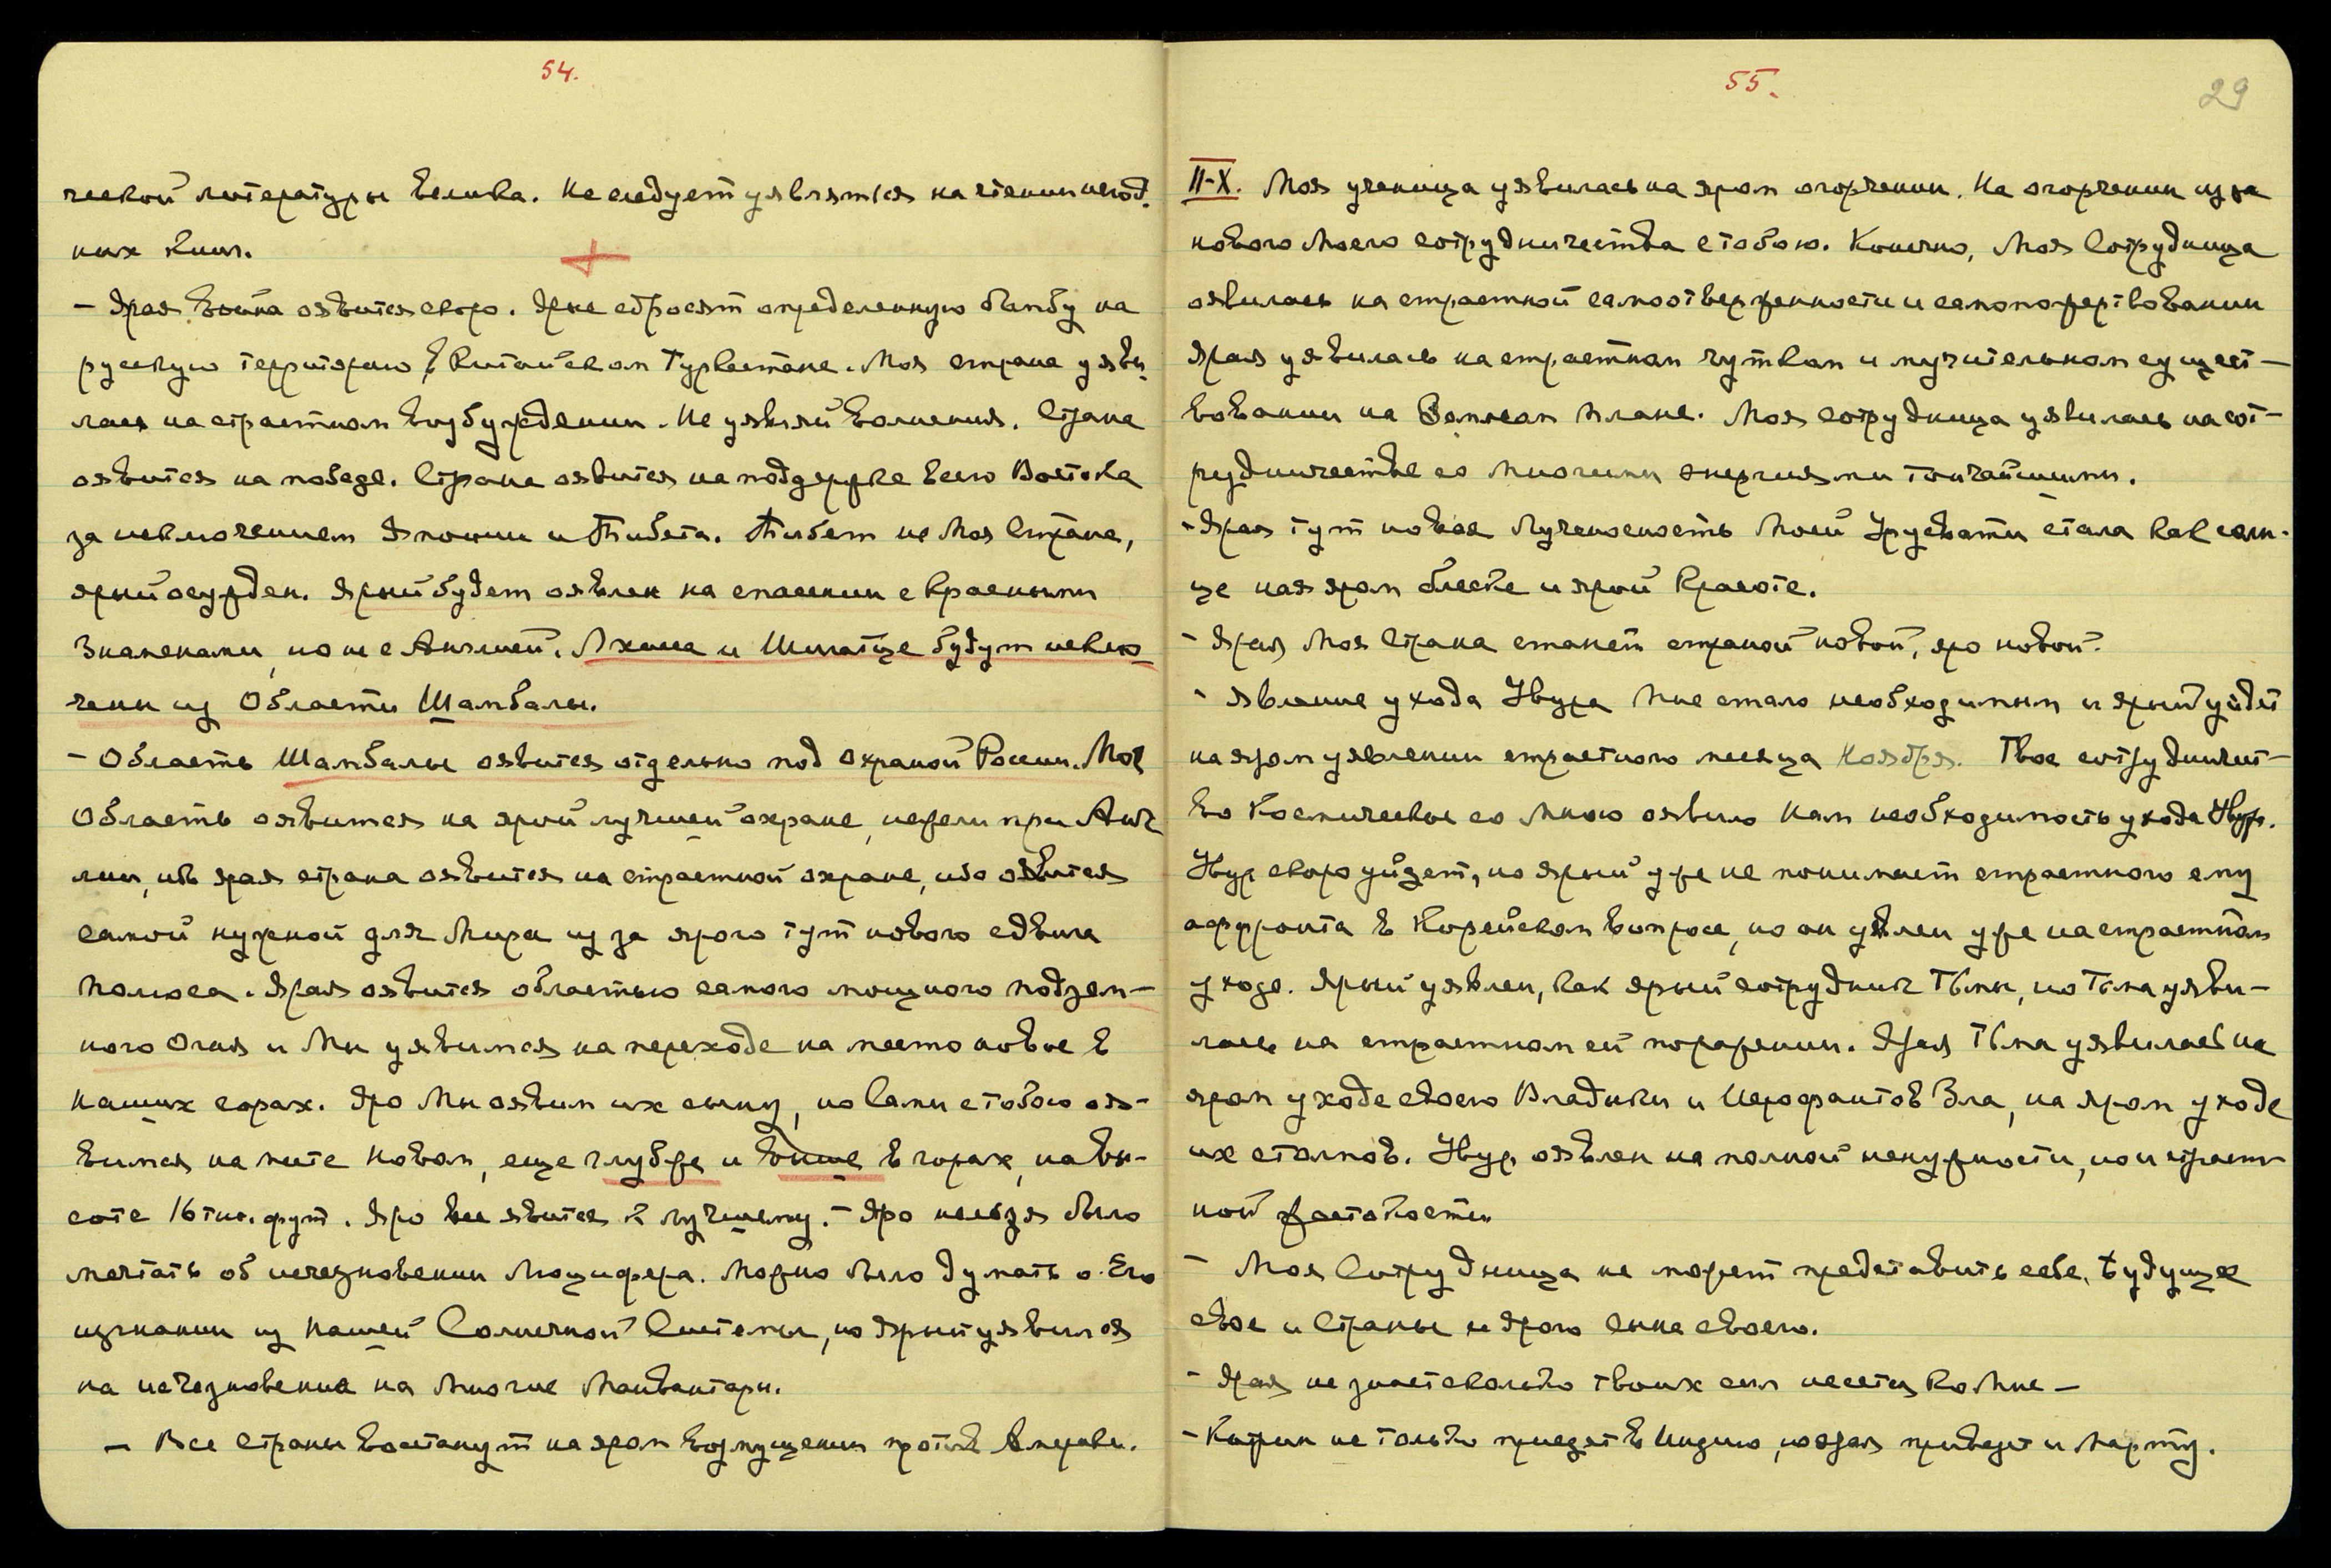 54.
ческой литературы велика. Не следует уявляться на чтении негод-
ных книг.
– Ярая война оявится скоро. Ярые сбросят определенную бомбу на
русскую территорию в Китайском Туркестане. Моя страна уяви-
лась на страстном возбуждении. Не уявляй волнения. Страна
оявится на победе. Страна оявится на поддержке всего Востока
за исключением Японии и Тибета. Тибет не Моя Страна,
ярый осужден. Ярый будет оявлен на спасении с Красными
Знаменами, но не с Англией. Лхаса и Шигатце будут исклю-
чены из Области Шамбалы.
– Область Шамбалы оявится отдельно под охраной России. Моя
Область оявится на ярой лучшей охране, нежели при Анг-
лии, ибо ярая страна оявится на страстной охране, ибо оявится
самой нужной для Мира из за ярого тут нового сдвига
Полюса. Ярая оявится областью самого мощного подзем-
ного Огня и Мы уявимся на переходе на место новое в
Наших горах. Яро Мы оявим их сыну, но Сами с тобою оя-
вимся на месте Новом, еще глубже и выше в горах, на вы-
соте 16 тыс. фут. Яро все явится к лучшему. – Яро нельзя было
мечтать об исчезновении Люцифера. Можно было думать о Его
изгнании из Нашей Солнечной Системы, но Ярый уявился
на исчезновение на Многие Манвантары.
– Все Страны восстанут на яром возмущении против Америки.
55.
29
II-X. Моя ученица уявилась на яром огорчении. На огорчении из за
нового Моего сотрудничества с тобою. Конечно, Моя Сотрудница
оявилась на страстной самоотверженности и самопожертвовании
Ярая уявилась на страстном чутком и мучительном сущест-
вовании на Земном плане. Моя сотрудница уявилась на сот-
рудничестве со Многими энергиями тончайшими.
– Ярая тут новая Лученосность Моей Урусвати стала как солн-
це на яром блеске и ярой Красоте.
– Ярая Моя Страна станет страной новой, яро новой.
– Явление ухода Увура Мне стало необходимым и ярый уйдет
на яром уявлении страстного месяца Ноября. Твое сотрудничест-
во Космическое со Мною оявило Нам необходимость ухода Увур.
Увур скоро уйдет, но Ярый уже не понимает страстного ему
афронта в Корейском вопросе, но он уявлен уже на страстном
уходе. Ярый уявлен, как ярый сотрудник Тьмы, но Тьма уяви-
лась на страстном ей поражении. Ярая Тьма уявилась на
яром уходе своего Владыки и Иерофантов Зла, на яром уходе
их столпов. Увур оявлен на полной ненужности, но и страст-
ной жестокости
– Моя Сотрудница не может представить себе, будущее
свое и Страны и ярого сына своего.
– Ярая не знает сколько твоих сил несется ко Мне –
– Катрин не только приедет в Индию, но ярая привезет и Марту.